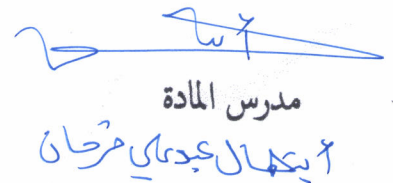 مدرس المادة
أ بتهال عبد علي فرحان